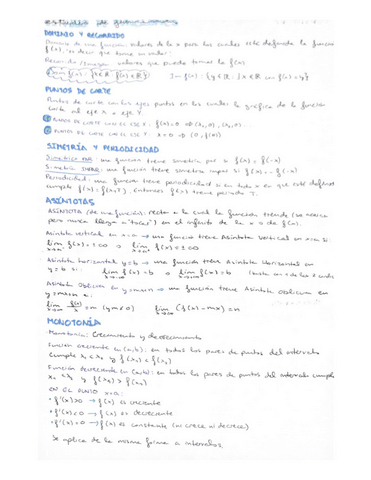 DOMINIO Y RECORRIDO
Dominio de una función: valores de la x para los cuales está definida la función
f(x), es decir que tiene
Recorrido/Imagen: valores que puede tomar la f(x)
Dom f(x): {x∈ℝ: f(x)∈ℝ} Im f(x): {y∈ℝ: ∃x∈ℝ con f(x)=y}
PUNTOS DE CORTE
Puntos de corte con los ejes: puntos en los cuales la gráfica de la función
corta al eje X o eje Y.
PUNTOS DE CORTE CON EL EJE X: f(x)=0
PUNTOS DE CORTE CON EL EJE Y: x=0 ⇒ (0, f(0))
SIMETRÍA Y PERIODICIDAD
Simetría PAR: una función tiene simetría par si f(x)=f(-x)
Simetría IMPAR: una función tiene simetría impar si f(x)=-f(-x)
Periodicidad: una función tiene periodicidad si en todo x en que esté definida
cumple f(x)=f(x+T), entonces f(x) tiene periodo T.
ASÍNTOTAS
ASÍNTOTA (de una función): recta a la cual la función tiende (se acerca
pero nunca llega a "tocar") en el infinito de la x o de f(x).
Asíntota vertical en x=a → una función tiene Asíntota Vertical en x=a si
lim f(x)=±∞ o lim f(x)=±∞
Asíntota horizontal y=b → una función tiene Asíntota Horizontal en
y=b si: lim f(x)=b o lim f(x)=b
Asíntota Oblicua en y=mx+n → una función tiene Asíntota Oblicua en
y=mx+n si:
lim f(x)/x = m (y m≠0) lim (f(x)-mx)=n
MONOTONÍA
Monotonía: Crecimiento y decrecimiento
Función creciente en (a,b): en todos los pares de puntos del intervalo
cumple x₁<x₂ y f(x₁)<f(x₂)
Función decreciente en (a,b): en todos los pares de puntos del intervalo cumple
x₁<x₂ y f(x₁)>f(x₂)
EN EL PUNTO x=a:
• f'(x)>0 → f(x) es creciente
• f'(x)<0 → f(x) es decreciente
• f'(x)=0 → f(x) es constante (ni crece ni decrece)
Se aplica de la misma forma a intervalos